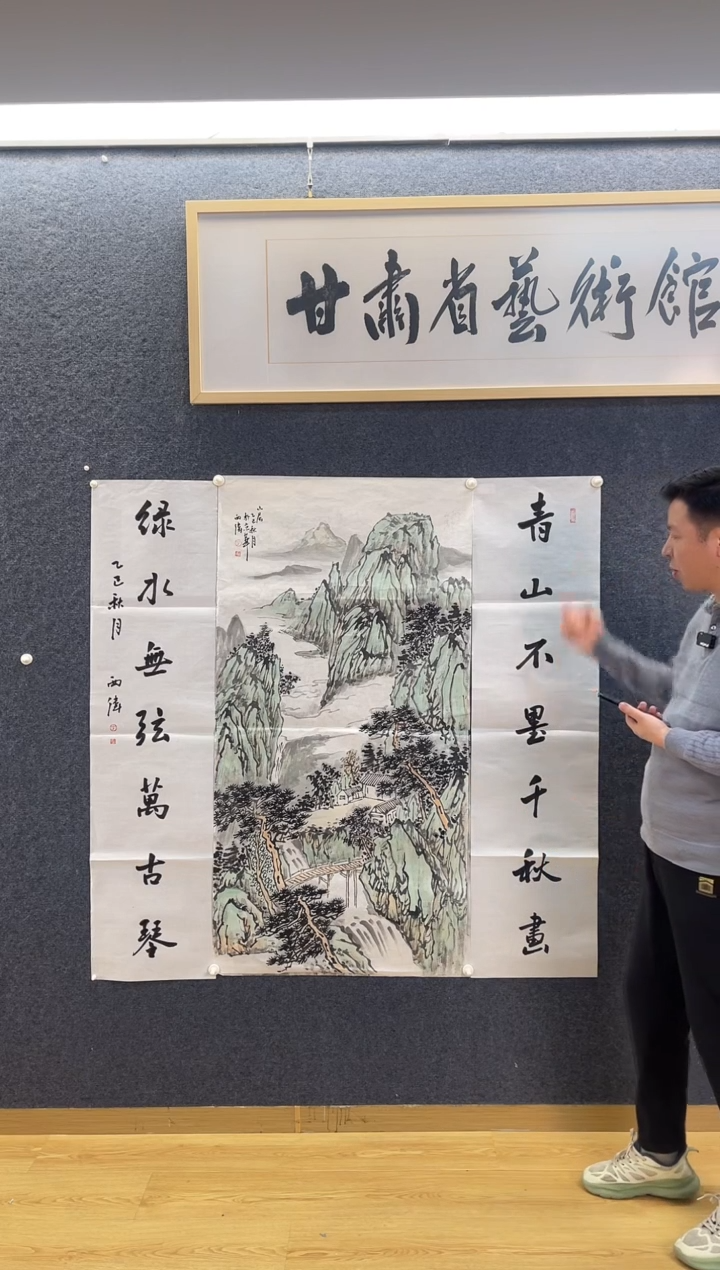 甘肅省藝術館
青山不墨千秋畫
綠水無弦萬古琴
乙巳秋月 雨濤